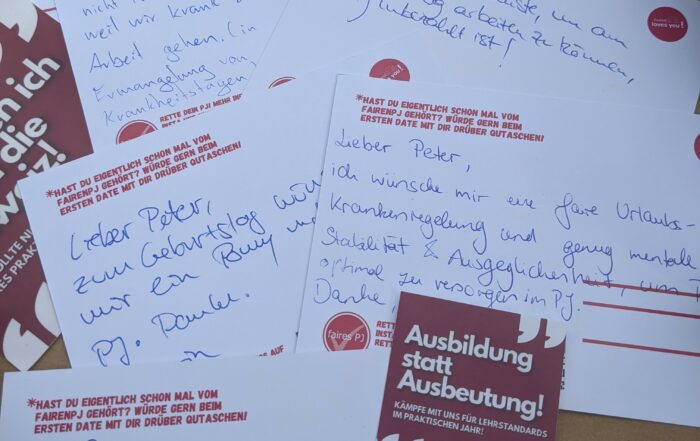 nicht
weil wir krank
Arbeit gehen. (in
Ermangelung von
Krankheitstagen,
RETTE DEIN PJ! MEHR INF
arbeiten zu können,
unbezahlt ist!
loves you!
n ich
die
weiz!
OLLTE NI
RES PRAK
*HAST DU EIGENTLICH SCHON MAL VOM
FAIRENPJ GEHÖRT? WÜRDE GERN BEIM
ERSTEN DATE MIT DIR DRÜBER QUTASCHEN!
Lieber Peter,
zum Geburtstag wün
mir ein Pony
PJ. Danke.
*HAST DU EIGENTLICH SCHON MAL VOM
FAIRENPJ GEHÖRT? WÜRDE GERN BEIM
ERSTEN DATE MIT DIR DRÜBER QUTASCHEN!
Lieber Peter,
ich wünsche mir eine faire Urlaubs-
Krankenregelung und genug mentale
Stabilität & Ausgeglichenheit, um
optimal zu versorgen im PJ.
Danke,
faires PJ
RETT
INST
RETT
S AUF
*HAST DU EIGENTLICH SCHON MAL VOM
FAIRENPJ GEHÖRT? WÜRDE GERN BEIM
ERSTEN DATE MIT DIR DRÜBER QUTASCHEN!
Ausbildung
statt
Ausbeutung!
KÄMPFE MIT UNS FÜR LEHRSTANDARDS
IM PRAKTISCHEN JAHR!